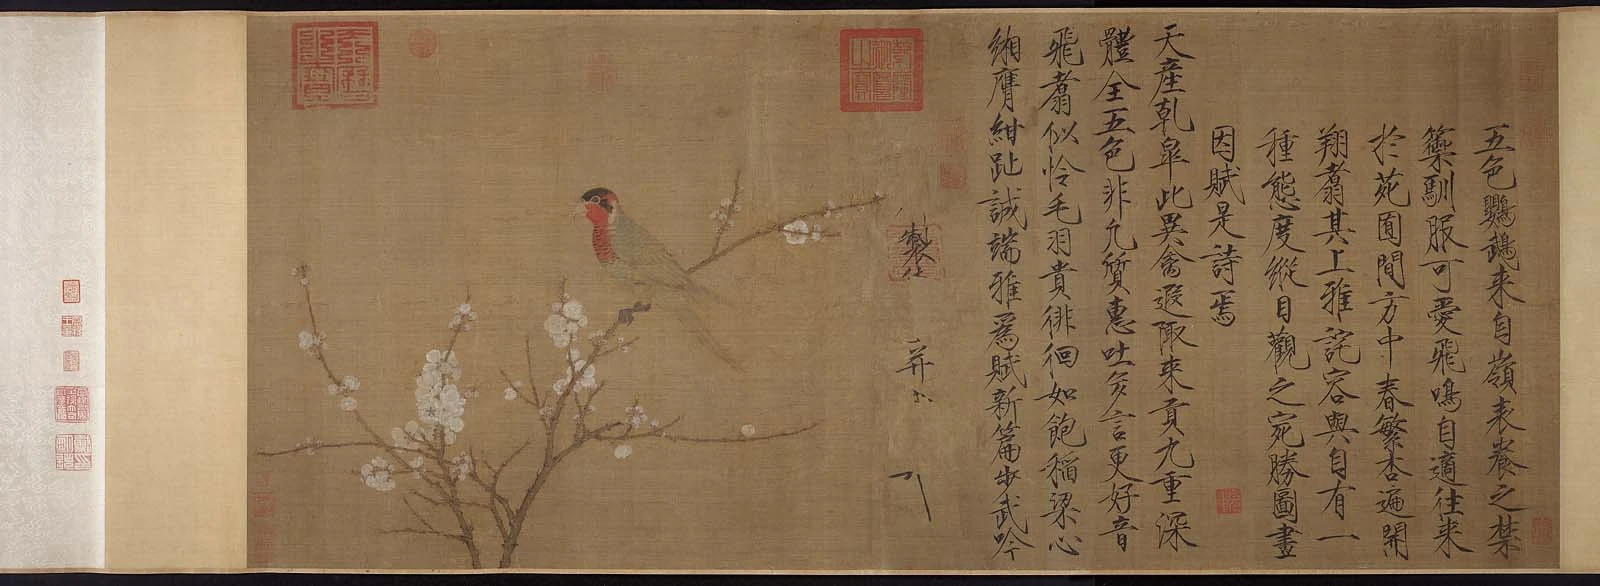 五色鸚鵡来自嶺表養之禁
籞馴服可愛飛鳴自適往来
扵苑囿間方中春繁杏遍開
翔翥其上雅詫容與自有一
種態度縱目觀之宛勝圖畫
因賦是詩焉
天產乾皐此異禽遐陬来貢九重深
體全五色非凡質惠吐多言更好音
飛翥似憐毛羽貴徘徊如飽稻粱心
緗膺紺趾誠端雅爲賦新篇步武吟
製
并